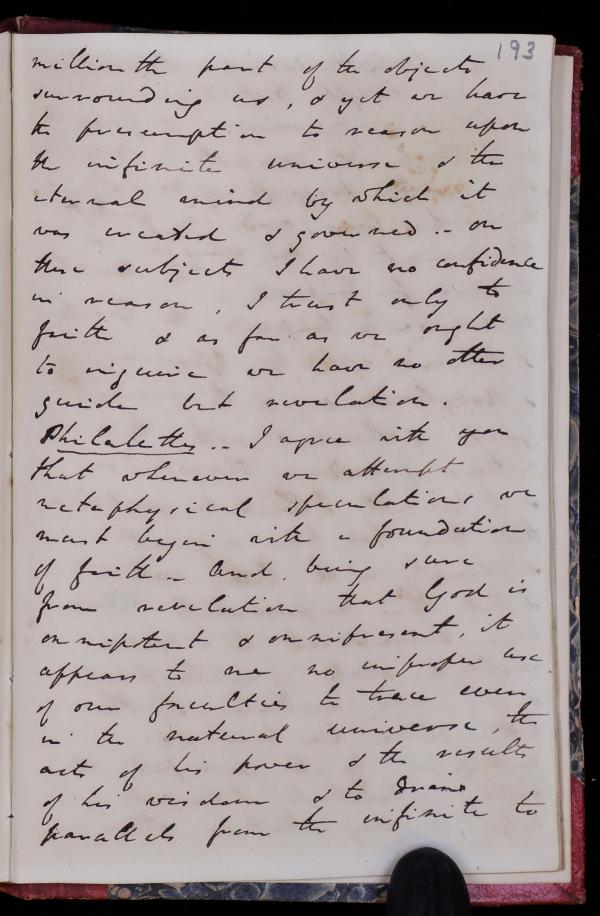 193
millionth part of the objects
surrounding us, & yet we have
the presumption to reason upon
the infinite universe & the
eternal mind by which it
was created & governed. - on
these subjects I have no confidence
in reason, I trust only to
faith & as far as we ought
to inquire we have no other
guide but revelation.
Philalethes.. I agree with you
that whenever we attempt
metaphysical speculations, we
must begin with a foundation
of faith - And, being sure
from revelation that God is
omnipotent & omnipresent, it
appears to me no improper use
of our faculties to trace even
in the natural universe, the
acts of his power & the results
of his wisdom & to draw
parallels from the infinite to